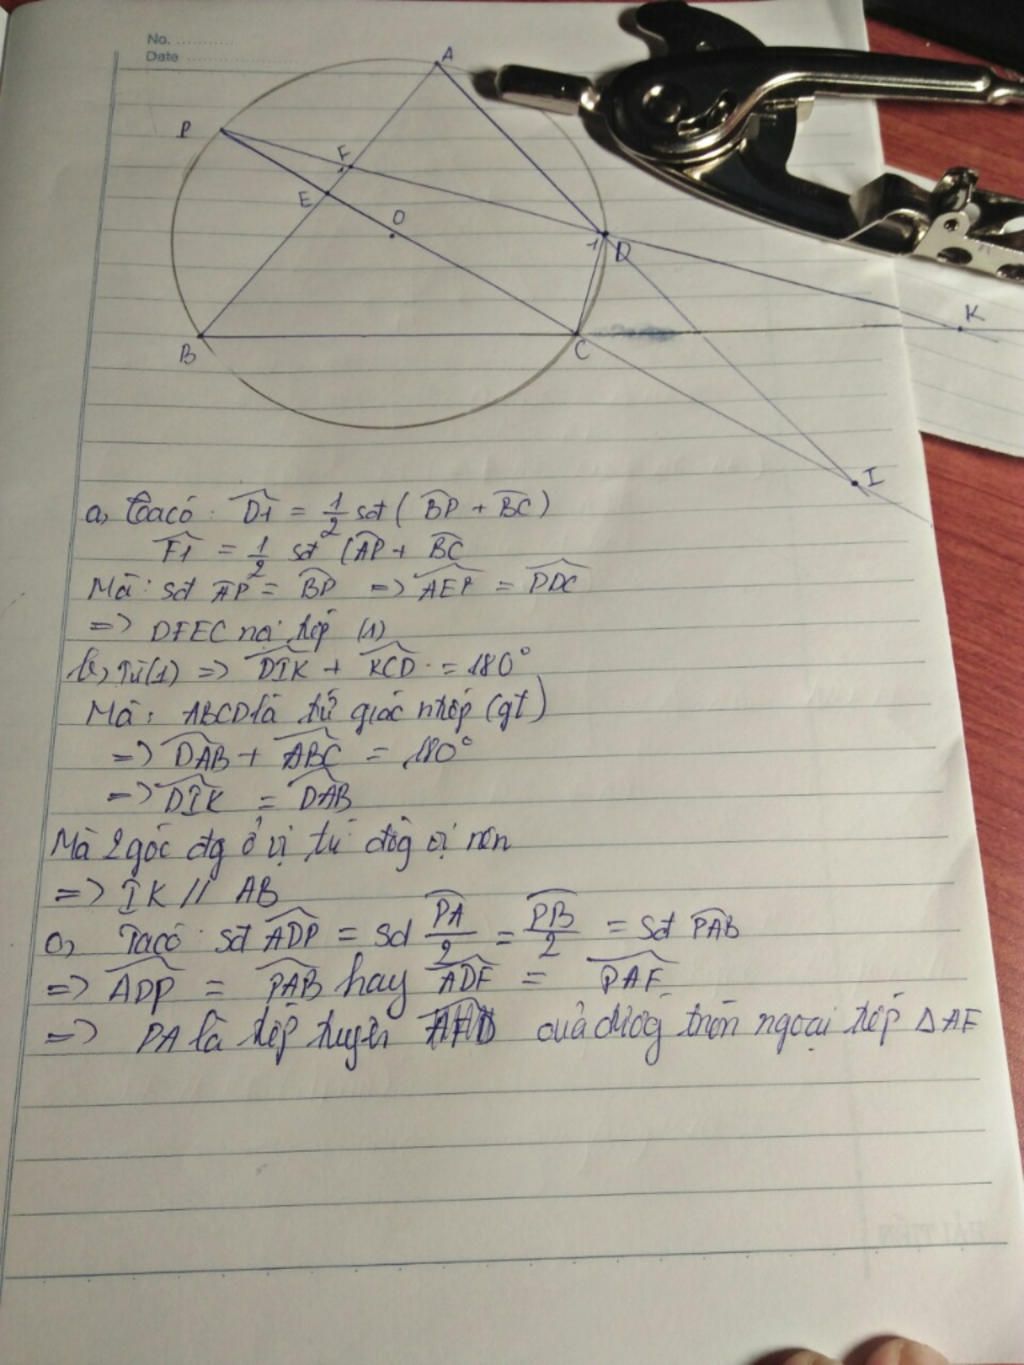 No. ............
Date ........................
A
P
F
E
O
1
D
K
B
C
I
a, Ta có: D1 = 1/2 sđ ( BP + BC )
F1 = 1/2 sđ ( AP + BC
Mà: sđ AP = BP => AEP = PDC
=> DFEC nội tiếp (1)
b, Từ (1) => DIK + KCD = 180°
Mà: ABCD là tứ giác ntiếp (gt)
=> DAB + ABC = 180°
=> DIK = DAB
Mà 2 góc đg ở vị trí đồg vị nên
=> IK // AB
c, Ta có: sđ ADP = sđ PA/2 = PB/2 = sđ PAB
=> ADP = PAB hay ADF = PAF
=> PA là tiếp tuyến của đườg tròn ngoại tiếp Δ AF
HẢI TIẾN